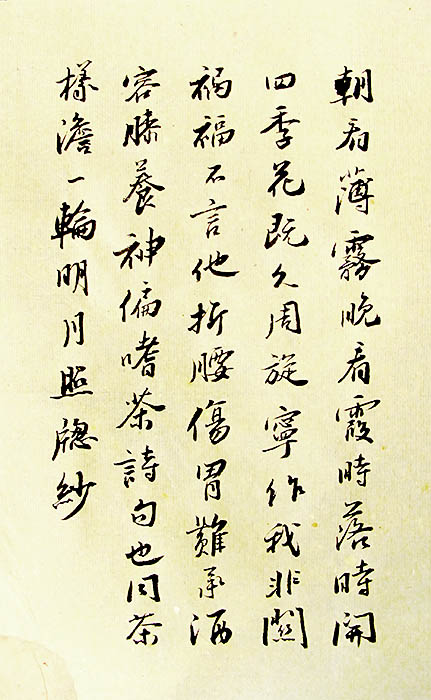 朝看薄霧晚看霞時落時開
四季花既久周旋寧作我非關
禍福不言他折腰傷胃難承酒
容膝養神偏嗜茶詩句也同茶
樣澹一輪明月照窗紗